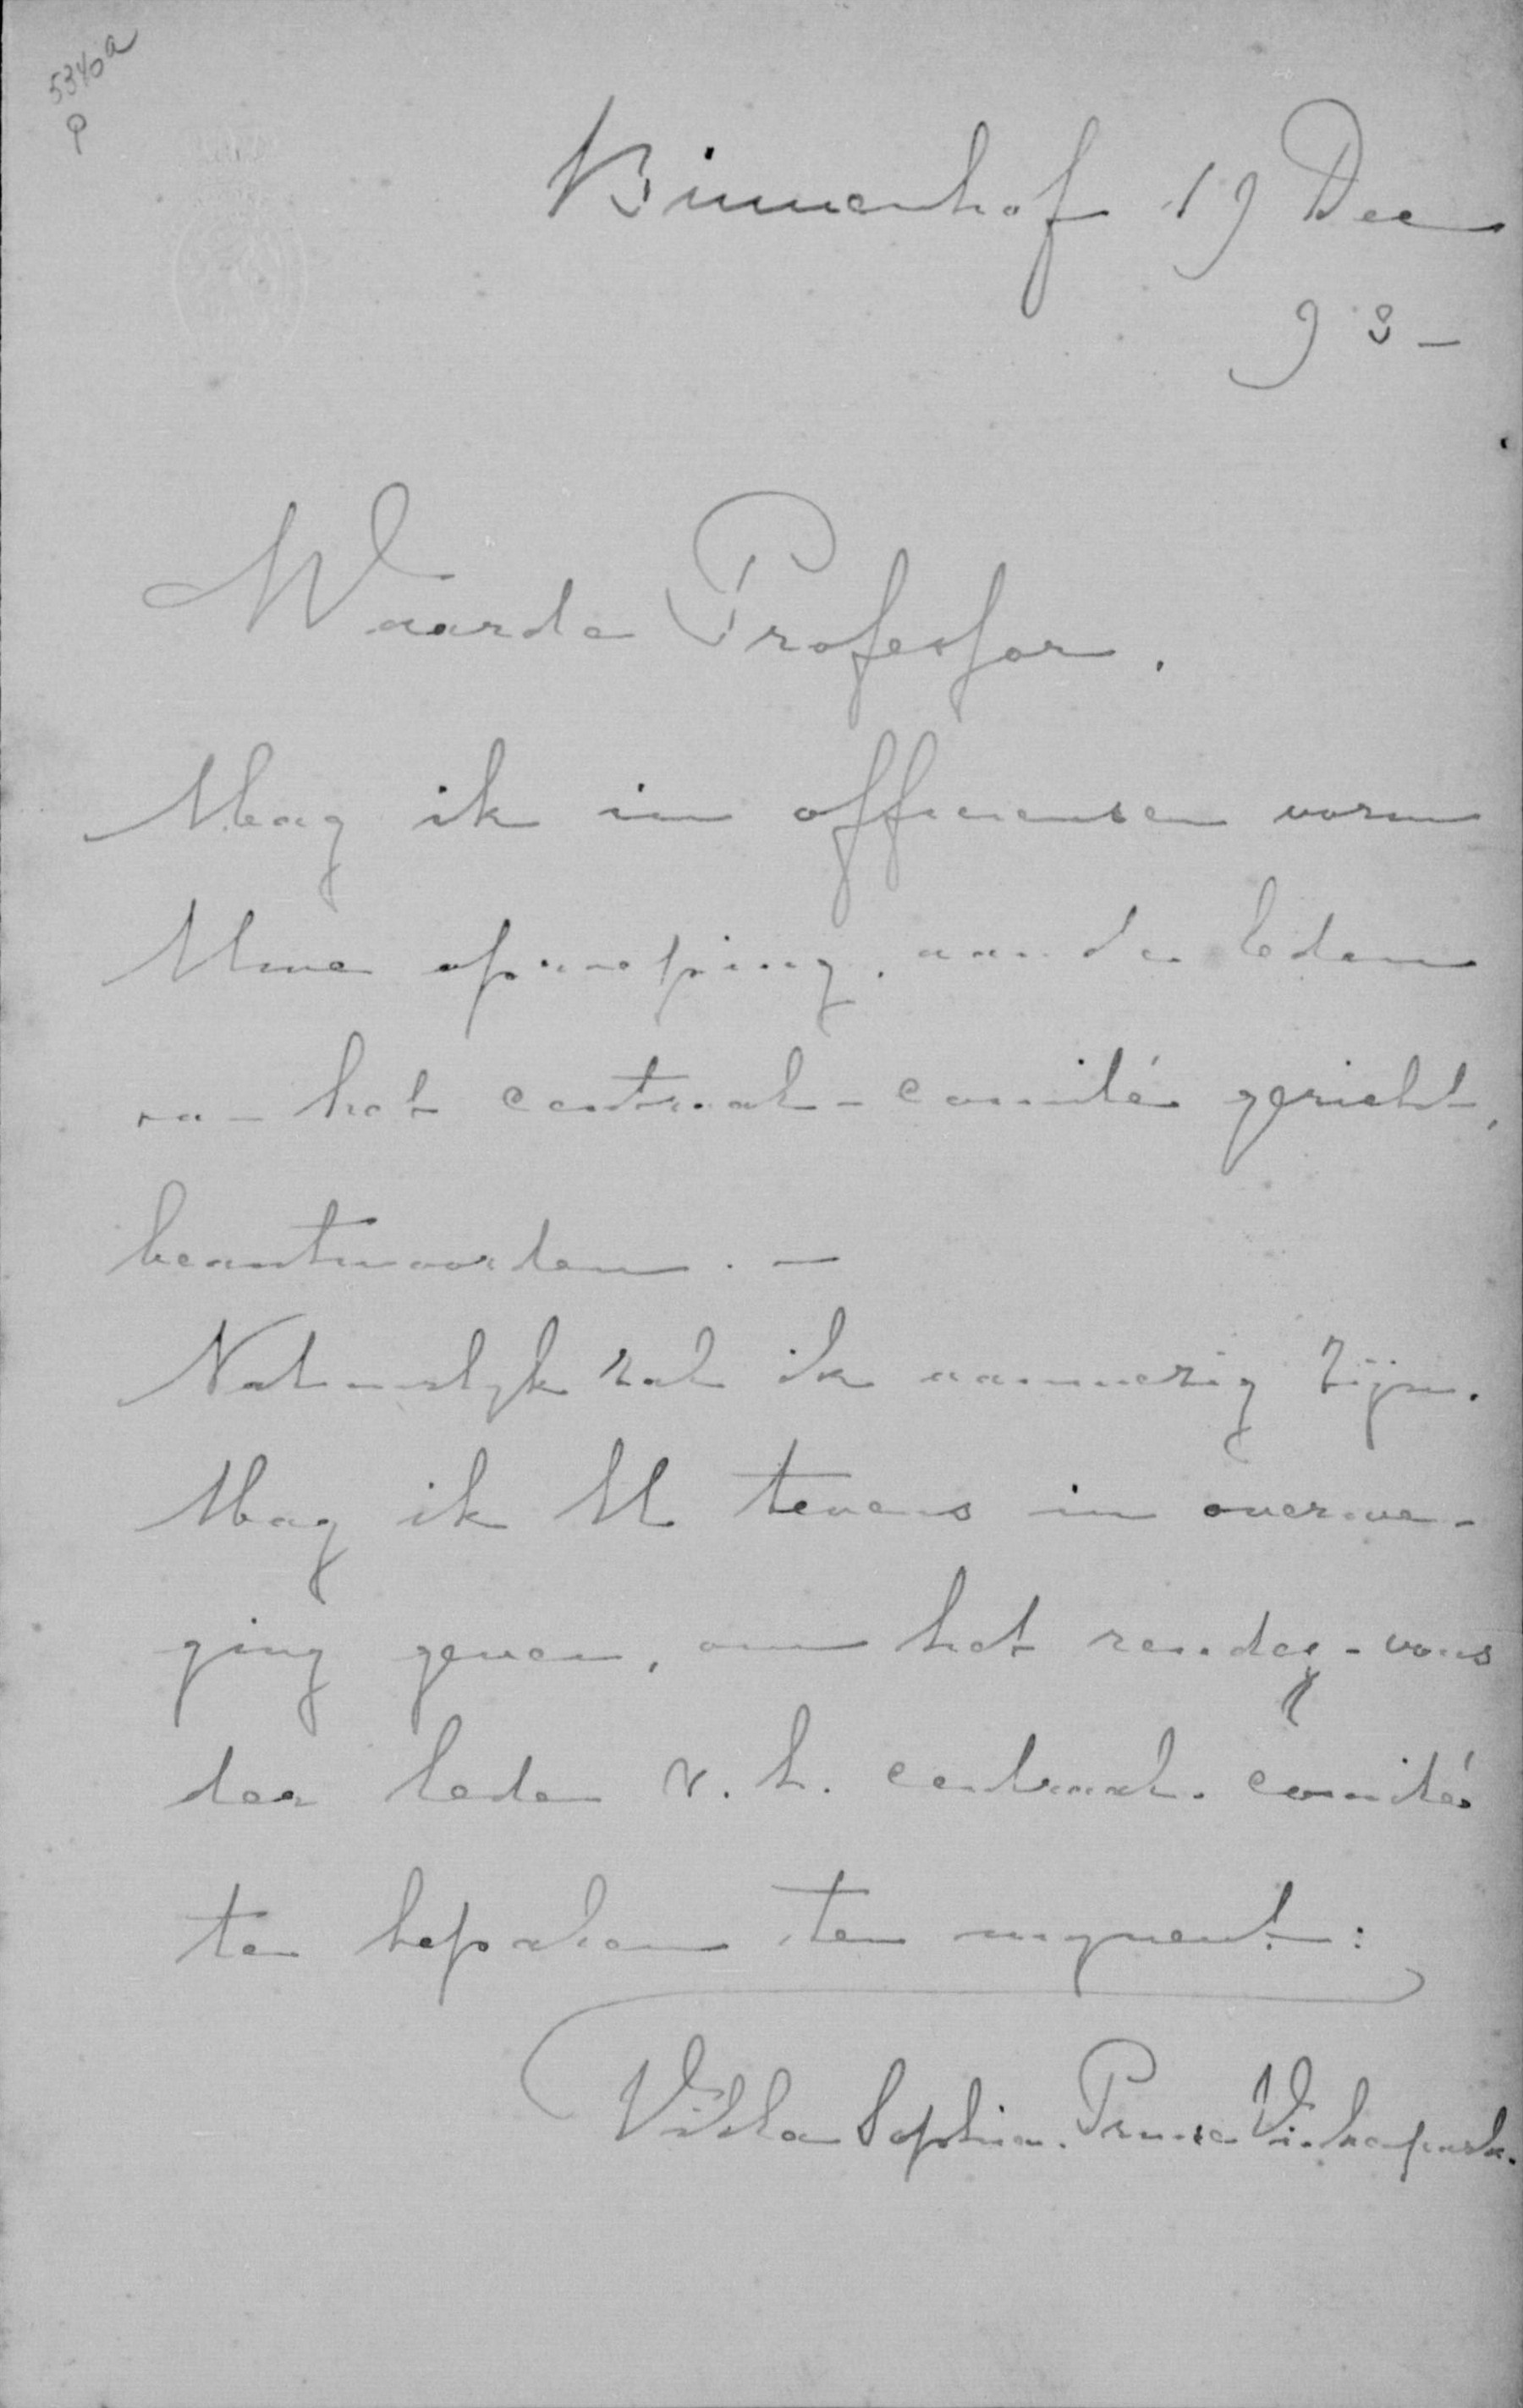 5340a
P
Binnenhof 19 Dec
93 -
Waarde Professor.
Mag ik in officieusen vorm
Uwe oproeping, aan de leden
van het centraal-comité gericht,
beantwoorden. -
Natuurlyk zal ik aanwezig zijn.
Mag ik U tevens in overwe-
ging geven, om het rendez-vous
der leden v. h. centraal-comité
te bepalen ten
Villa Sophia. Prins